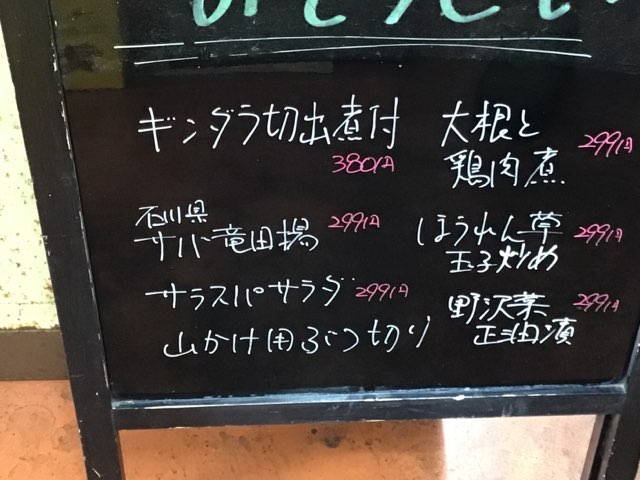 ギンダラ切出煮付
380円
石川県
サバ竜田揚
299円
サラスパサラダ
299円
山かけ用ぶつ切り
大根と
鶏肉煮
299円
ほうれん草
玉子炒め
299円
野沢菜
正油漬
299円